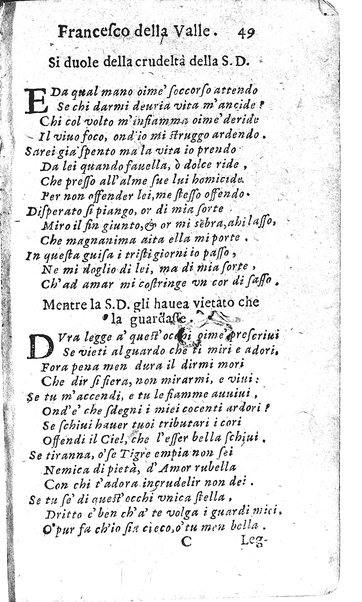 Francesco della Valle. 49
Si duole della crudeltà della S.D.
E Da qual mano oimè soccorso attendo
Se chi darmi deuria vita m'ancide?
Chi col volto m'infiamma oimè deride
Il viuo foco, ond'io mi struggo ardendo.
Sarei già spento ma la vita io prendo
Da lei quando fauella, ò dolce ride,
Che presso all'alme sue lui homicide.
Per non offender lei, me stesso offendo.
Disperato si piango, or di mia sorte
Miro il fin giunto, & or mi sẽbra, ahi lasso,
Che magnanima aita ella mi porte.
In questa guisa i tristi giorni io passo,
Ne mi doglio di lei, ma di mia sorte,
Ch'ad amar mi costringe vn cor di sasso.
Mentre la S.D. gli hauea vietato che
la guardasse.
DVra legge a' quest'occhi oime prescriui
Se vieti al guardo che ti miri e adori,
Fora pena men dura il dirmi mori
Che dir sì fiera, non mirarmi, e viui:
Se tu m'accendi, e tu le fiamme auuiui,
Ond'è che sdegni i miei cocenti ardori?
Se schiui hauer tuoi tributari i cori
Offendi il Ciel, che l'esser bella schiui.
Se tiranna, o'se Tigre empia non sei
Nemica di pietà, d'Amor rubella
Con chi t'adora incrudelir non dei.
Se tu se' di quest'occhi vnica stella,
Dritto e' ben ch'a' te volga i guardi miei,
O' pur fa ch'io sia cieco, o' tu men bella.
C Leg-